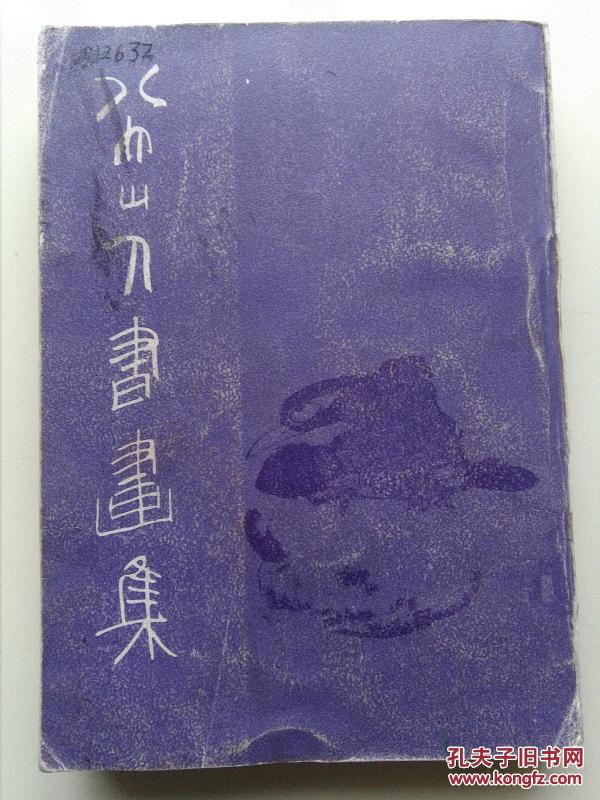 2637
八大山人書畫集
孔夫子旧书网
www.kongfz.com